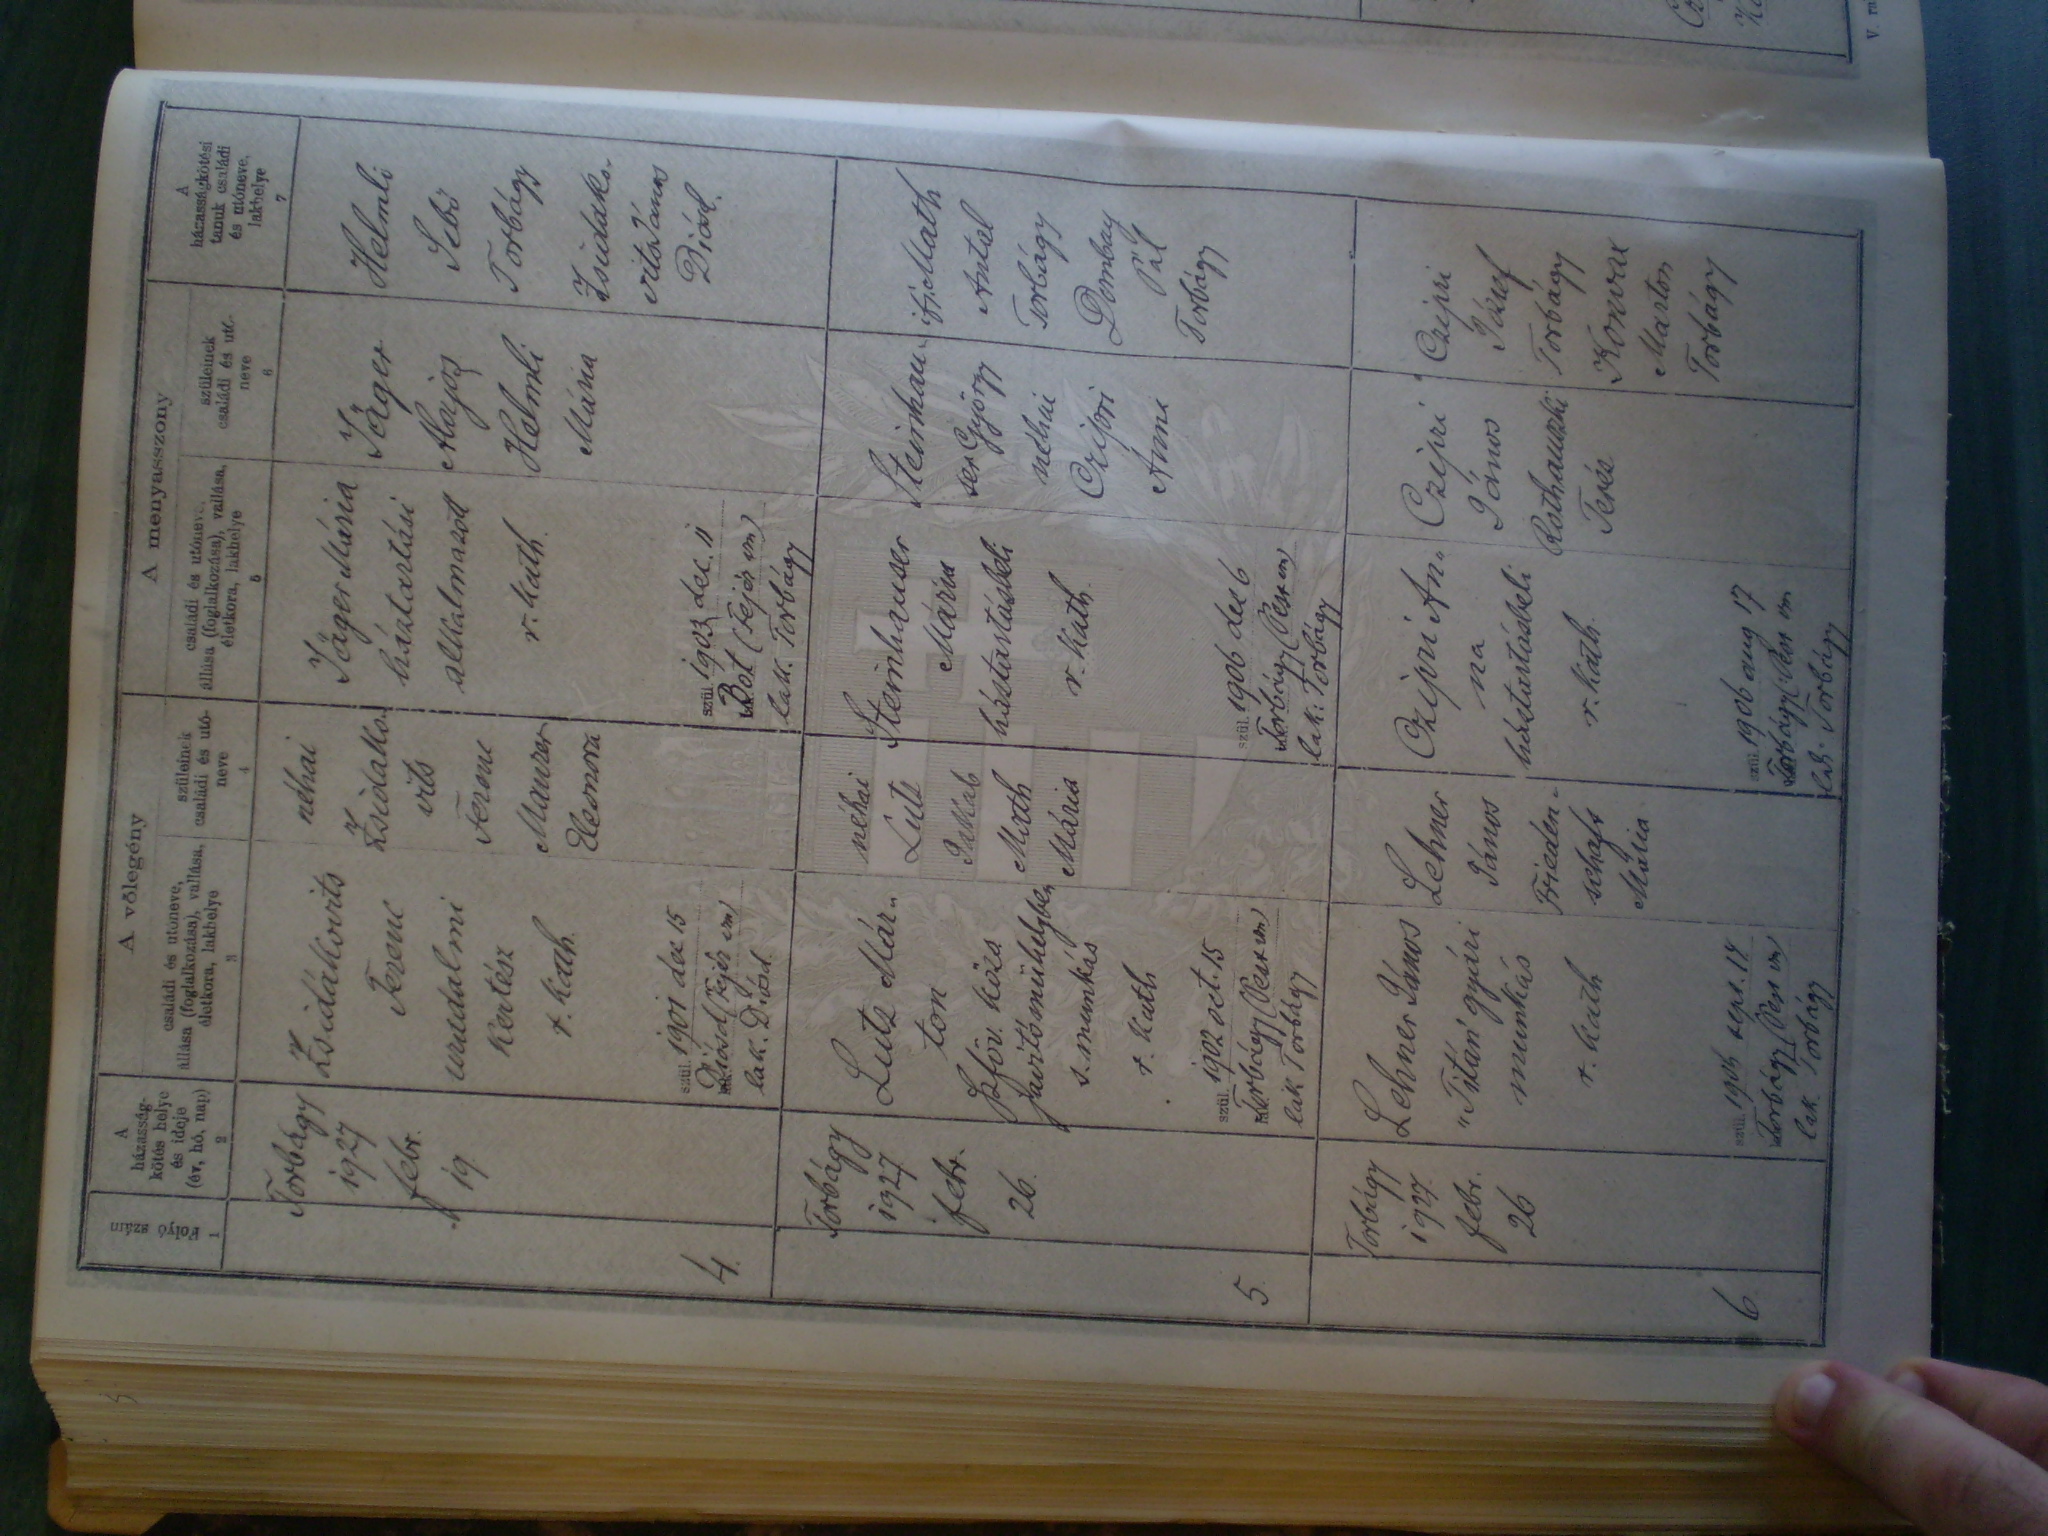 A
házasság-
kötés helye
és ideje
(év, hó, nap)
2
Folyó szám
1
A vőlegény
családi és utóneve,
állása (foglalkozása), vallása,
életkora, lakhelye
3
szüleinek
családi és utó-
neve
4
A menyasszony
családi és utóneve,
állása (foglalkozása), vallása,
életkora, lakhelye
5
szüleinek
családi és utó-
neve
6
A
házasságkötési
tanuk családi
és utóneve,
lakhelye
7
4.
Torbágy
1927
febr.
19.
Zsidákovits
Ferenc
uradalmi
kertész
r. kath.
szül. 1901 dec 15
Diósd (Fejér vm)
lak. Diósd.
néhai
Zsidako-
vits
Ferenc
Maurer
Eleonora
Jäger Mária
háztartási
alkalmazott
r. kath.
szül. 1903 dec. 11
Bot (Fejér vm)
lak. Torbágy
Jäger
Alajos
Helmli
Mária
Helmli
Torbágy
Zsidako-
vits János
Diósd.
5.
Torbágy
1927
febr.
26.
Lutz Már-
ton
javítóműhelyben
s. munkás
r. kath
szül. 1902 oct. 15
Torbágy (Pest vm)
lak Torbágy
néhai
Lutz
Jakab
Math
Mária
Steinhauser
Mária
háztartásbeli
r. kath.
szül. 1906 dec 6
Torbágy (Pest vm)
lak: Torbágy
Steinhau-
ser György
néhai
Czipri
Anni
ifj. Math
Antal
Torbágy
Dombay
Pál
Torbágy
6.
Torbágy
1927.
febr.
26
Lehner János
"Titán" gyári
munkás
r. kath
szül. 1904 sept. 14
Torbágy (Pest vm)
lak. Torbágy
Lehner
János
Frieden-
schafs
Mária.
Czipri An-
na
háztartásbeli
r. kath.
szül. 1906 aug 17
Torbágy (Pest vm
lak. Torbágy
Czipri
János
Rothauszki
Teréz
Czipri
József
Torbágy
Konrax
Marton
Torbágy